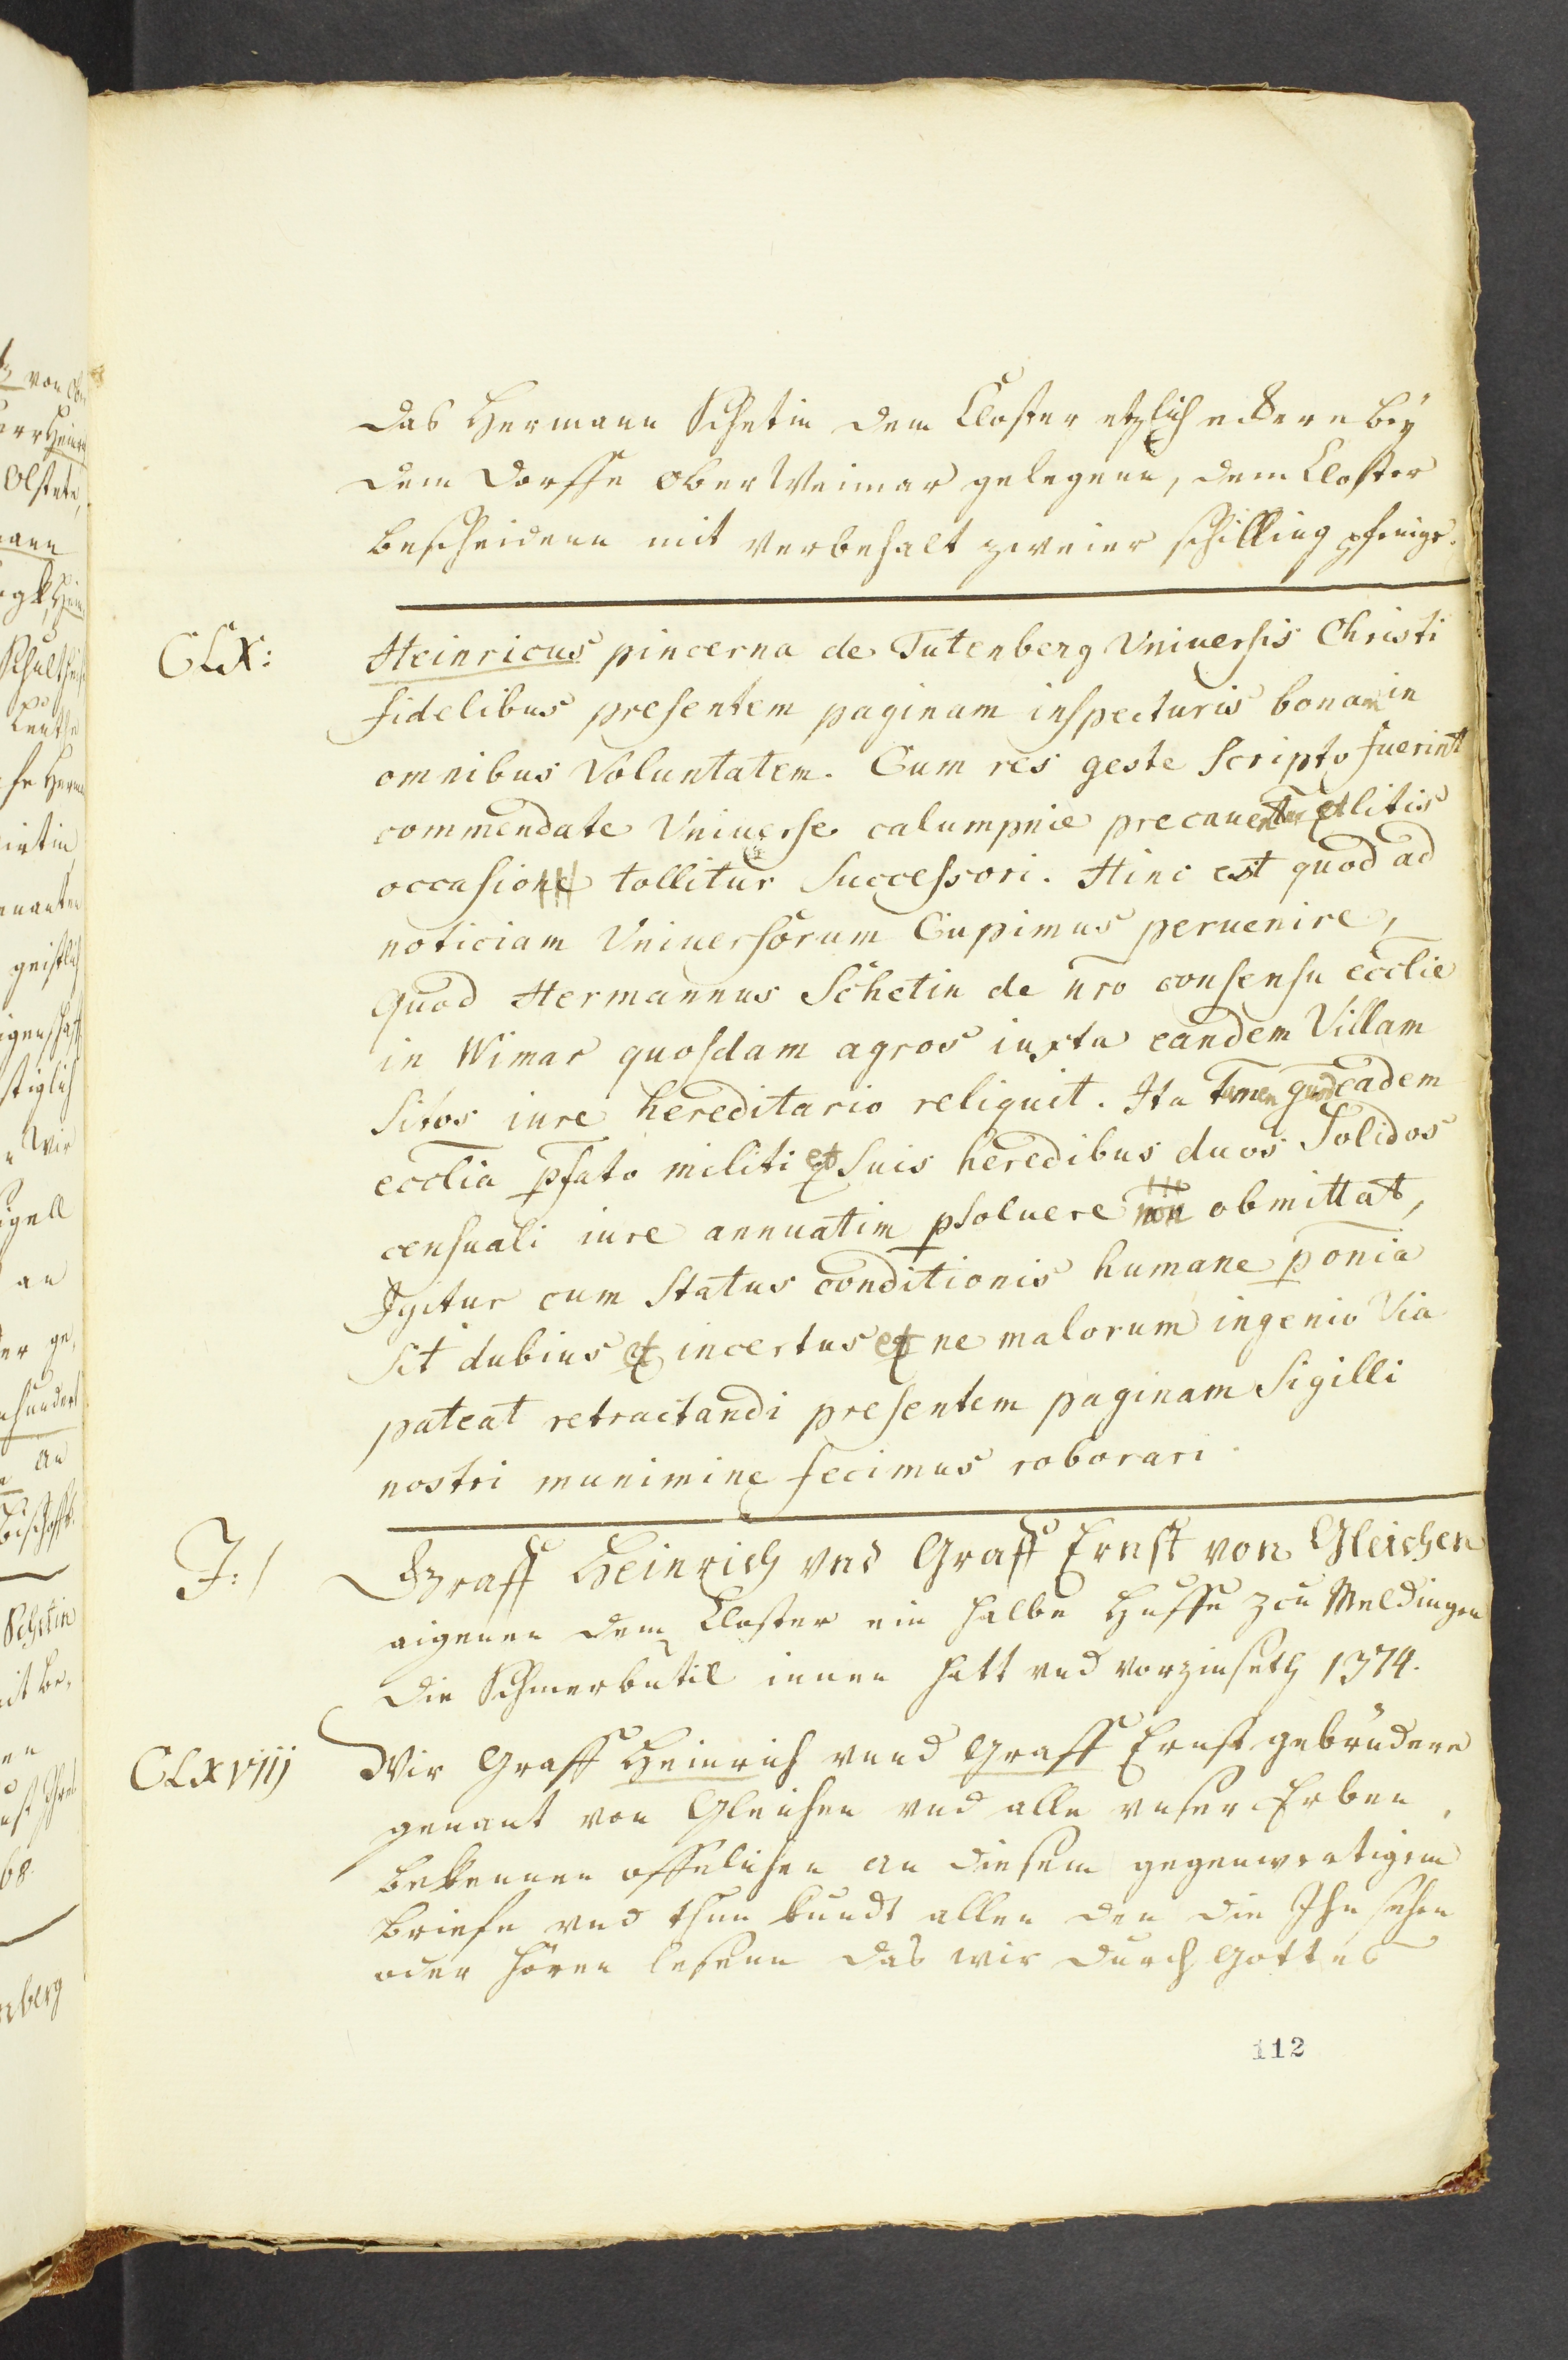 das Hermann Schetin dem Closter etzlich eckere bey
dem Dorffe ober Weimar gelegenn, dem Closter
bescheidenn mit verbehalt zweier schilling pfenige.
CLX:
Heinricus pincerna de Tutenberg Vniuersis Christi
fidelibus presentem paginam inspecturis bonam in
omnibus Voluntatem. Cum res geste scripto fuerint
commendate Vniuerse calumpnie precauetur et litis
occasione tollitur Successori. Hinc est quod ad
noticiam Vniuersorum Cupimus peruenire,
Quod Hermannus Schetin de nro consensu ecclie
in Wimar quosdam agros iuxta eandem Villam
sitos iure hereditario reliquit. Ita tamen quod eadem
ecclia pfato militi et suis heredibus duos Solidos
censuali iure annuatim psoluere non obmittat,
Igitur cum Status conditionis humane ponia
sit dubius et incertus et ne malorum ingenio Via
pateat retractandi presentem paginam Sigilli
nostri munimine fecimus roborari
J:/
Graff Heinrich vnd Graff Ernst von Gleichen
aigenen dem Closter ein halbe Huffe zcu Meldingen
die Schmerbutil innen hatt vnd vorzinseth 1374.
CLXVIIJ
Wir Graff Heinrich vnnd Graff Ernst gebrudere
genant von Gleichen vnd alle vnser Erben,
bekennen offelichen an diesem gegenwertigem
briefe vnd thun kundt allen den die Ihn sehen
oder hören lesenn das wir durch Gottes
112